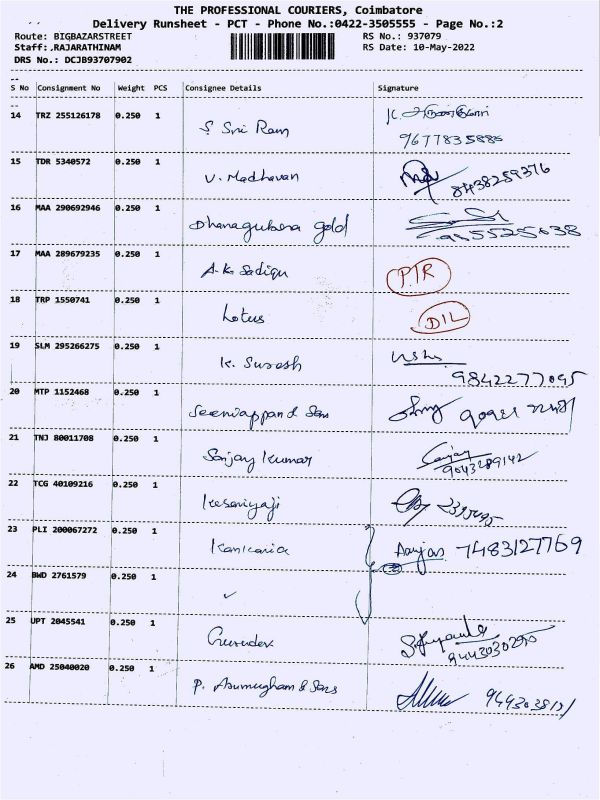 THE PROFESSIONAL COURIERS, Coimbatore
Delivery Runsheet - PCT - Phone No.:0422-3505555 - Page No.:2
Route: BIGBAZARSTREET RS No.: 937079
Staff: RAJARATHINAM RS Date: 10-May-2022
DRS No.: DCJB93707902
S No Consignment No Weight PCS Consignee Details Signature
14 TRZ 255126178 0.250 1 S. Sri Ram
9677835885
15 TDR 5340572 0.250 1 V. Madhavan 8438259376
16 MAA 290692946 0.250 1 Dhanagubera gold
17 MAA 289679235 0.250 1 A.K. Sadiqu PTR
18 TRP 1550741 0.250 1 Lotus DIL
19 SLM 295266275 0.250 1 K. Suresh
9842277095
20 MTP 1152468 0.250 1
21 TNJ 80011708 0.250 1 Sanjay Kumar Sanjay
9043289142
22 TCG 40109216 0.250 1 Kesariyaji
23 PLI 200067272 0.250 1 Kankaria 7483127769
24 BWD 2761579 0.250 1 ✓
25 UPT 2045541 0.250 1 Gurudev
9443030295
26 AMD 25040020 0.250 1 P. Arumugham & Sons